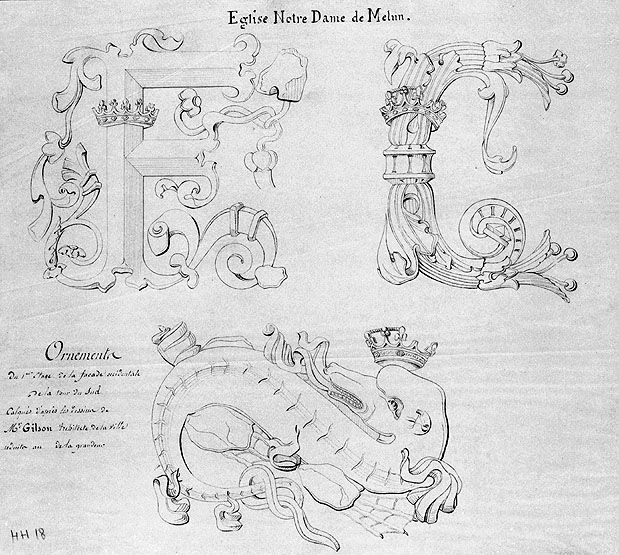 Eglise Notre Dame de Melun.
Ornements
Du 1er Etage de la façade occidentale
de la tour du Sud
Calqués d'après les dessins de
Mr Gilson Architecte de la Ville
réduits au de la grandeur
HH 18